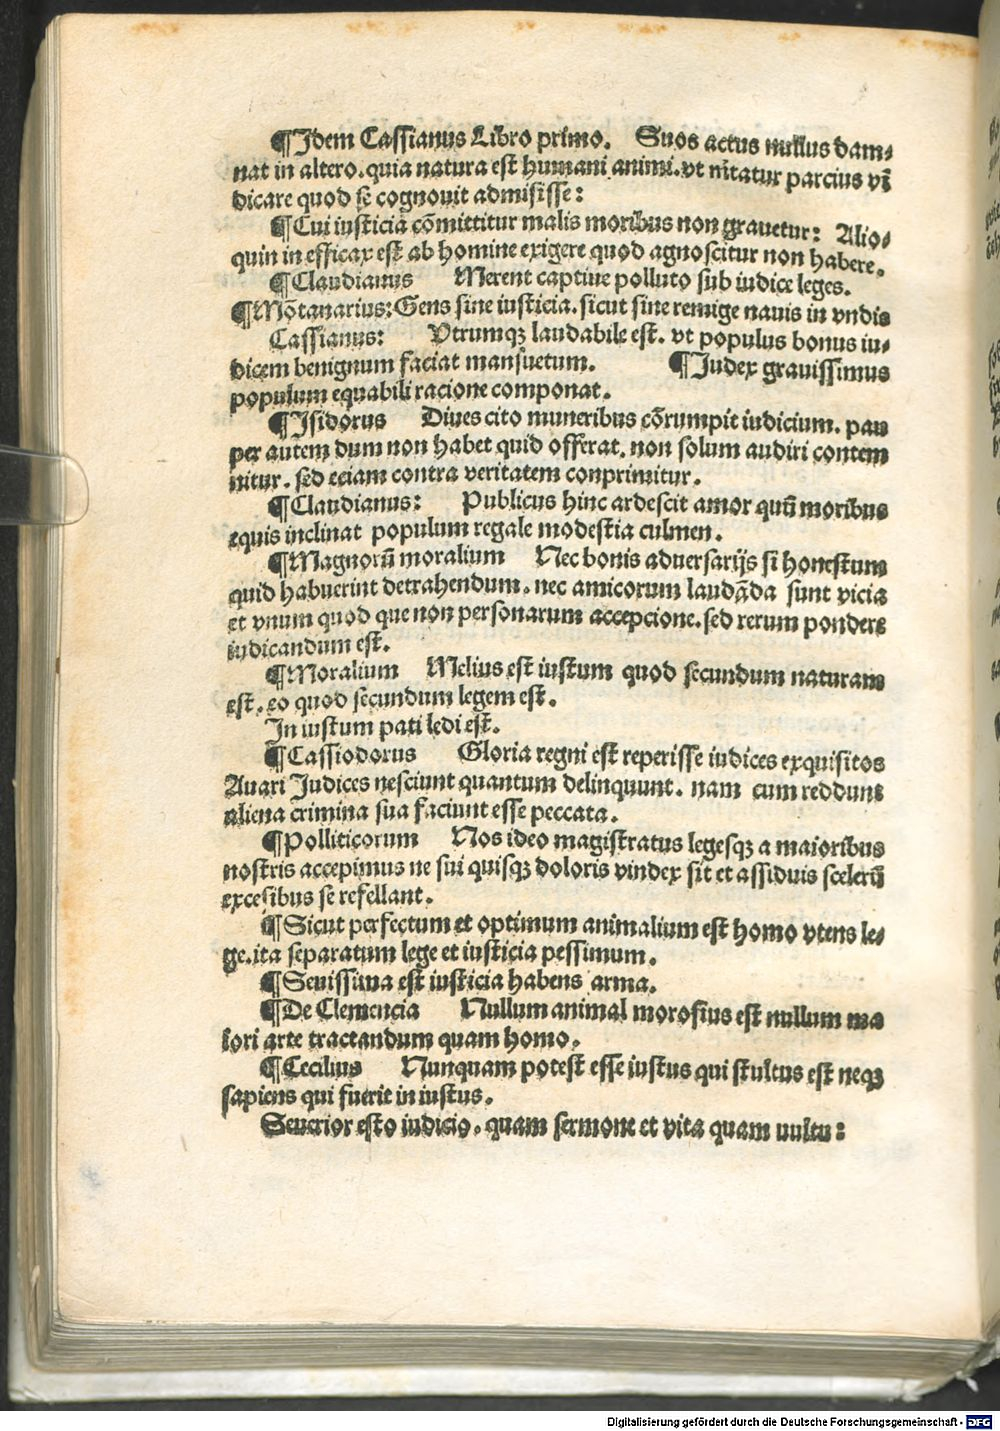 ¶Idem Cassianus Libro primo. Suos actus nullus dam⸗
nat in altero. quia natura est humani animi. vt nitatur parcius vĩ
dicare quod se cognouit admisisse:
¶Cui iusticia cõmittitur malis moribus non grauetur: Alio⸗
quin in efficax est ab homine exigere quod agnoscitur non habere.
¶Claudianus Merent captiue polluto sub iudice leges.
¶Mõtanarius: Gens sine iusticia. sicut sine remige nauis in vndis
Cassianus: Vtrumqꝫ laudabile est. vt populus bonus iu⸗
dicem benignum faciat mansuetum. ¶Iudex grauissimus
populum equabili racione componat.
¶Isidorus Diues cito muneribus cõrumpit iudicium. pau
per autem dum non habet quid offerat. non solum audiri contem
nitur. sed eciam contra veritatem conprimitur.
¶Claudianus: Publicus hinc ardescit amor quũ moribus
equis inclinat populum regale modestia culmen.
¶Magnorũ moralium Nec bonis aduersarijs si honestum
quid habuerint detrahendum. nec amicorum laudãda sunt vicia
et vnum quod que non personarum accepcione. sed rerum pondere
iudicandum est.
¶Moralium Melius est iustum quod secundum naturam
est. eo quod secundum legem est.
In iustum pati ledi est.
¶Cassiodorus Gloria regni est reperisse iudices exquisitos
Auari Iudices nesciunt quantum delinquunt. nam cum reddunt
aliena crimina sua faciunt esse peccata.
¶Polliticorum Nos ideo magistratus legesqꝫ a maioribus
nostris accepimus ne sui quisqꝫ doloris vindex sit et assiduis scelerũ
excesibus se refellant.
¶Sicut perfectum et optimum animalium est homo vtens le⸗
ge. ita separatum lege et iusticia pessimum.
¶Seuissima est iusticia habens arma.
¶De Clemencia Nullum animal morosius est nullum ma
iori arte tractandum quam homo.
¶Cecilius Nunquam potest esse iustus qui stultus est neqꝫ
sapiens qui fuerit in iustus.
Seuerior esto iudicio. quam sermone et vita quam uultu:
Digitalisierung gefördert durch die Deutsche Forschungsgemeinschaft - DFG